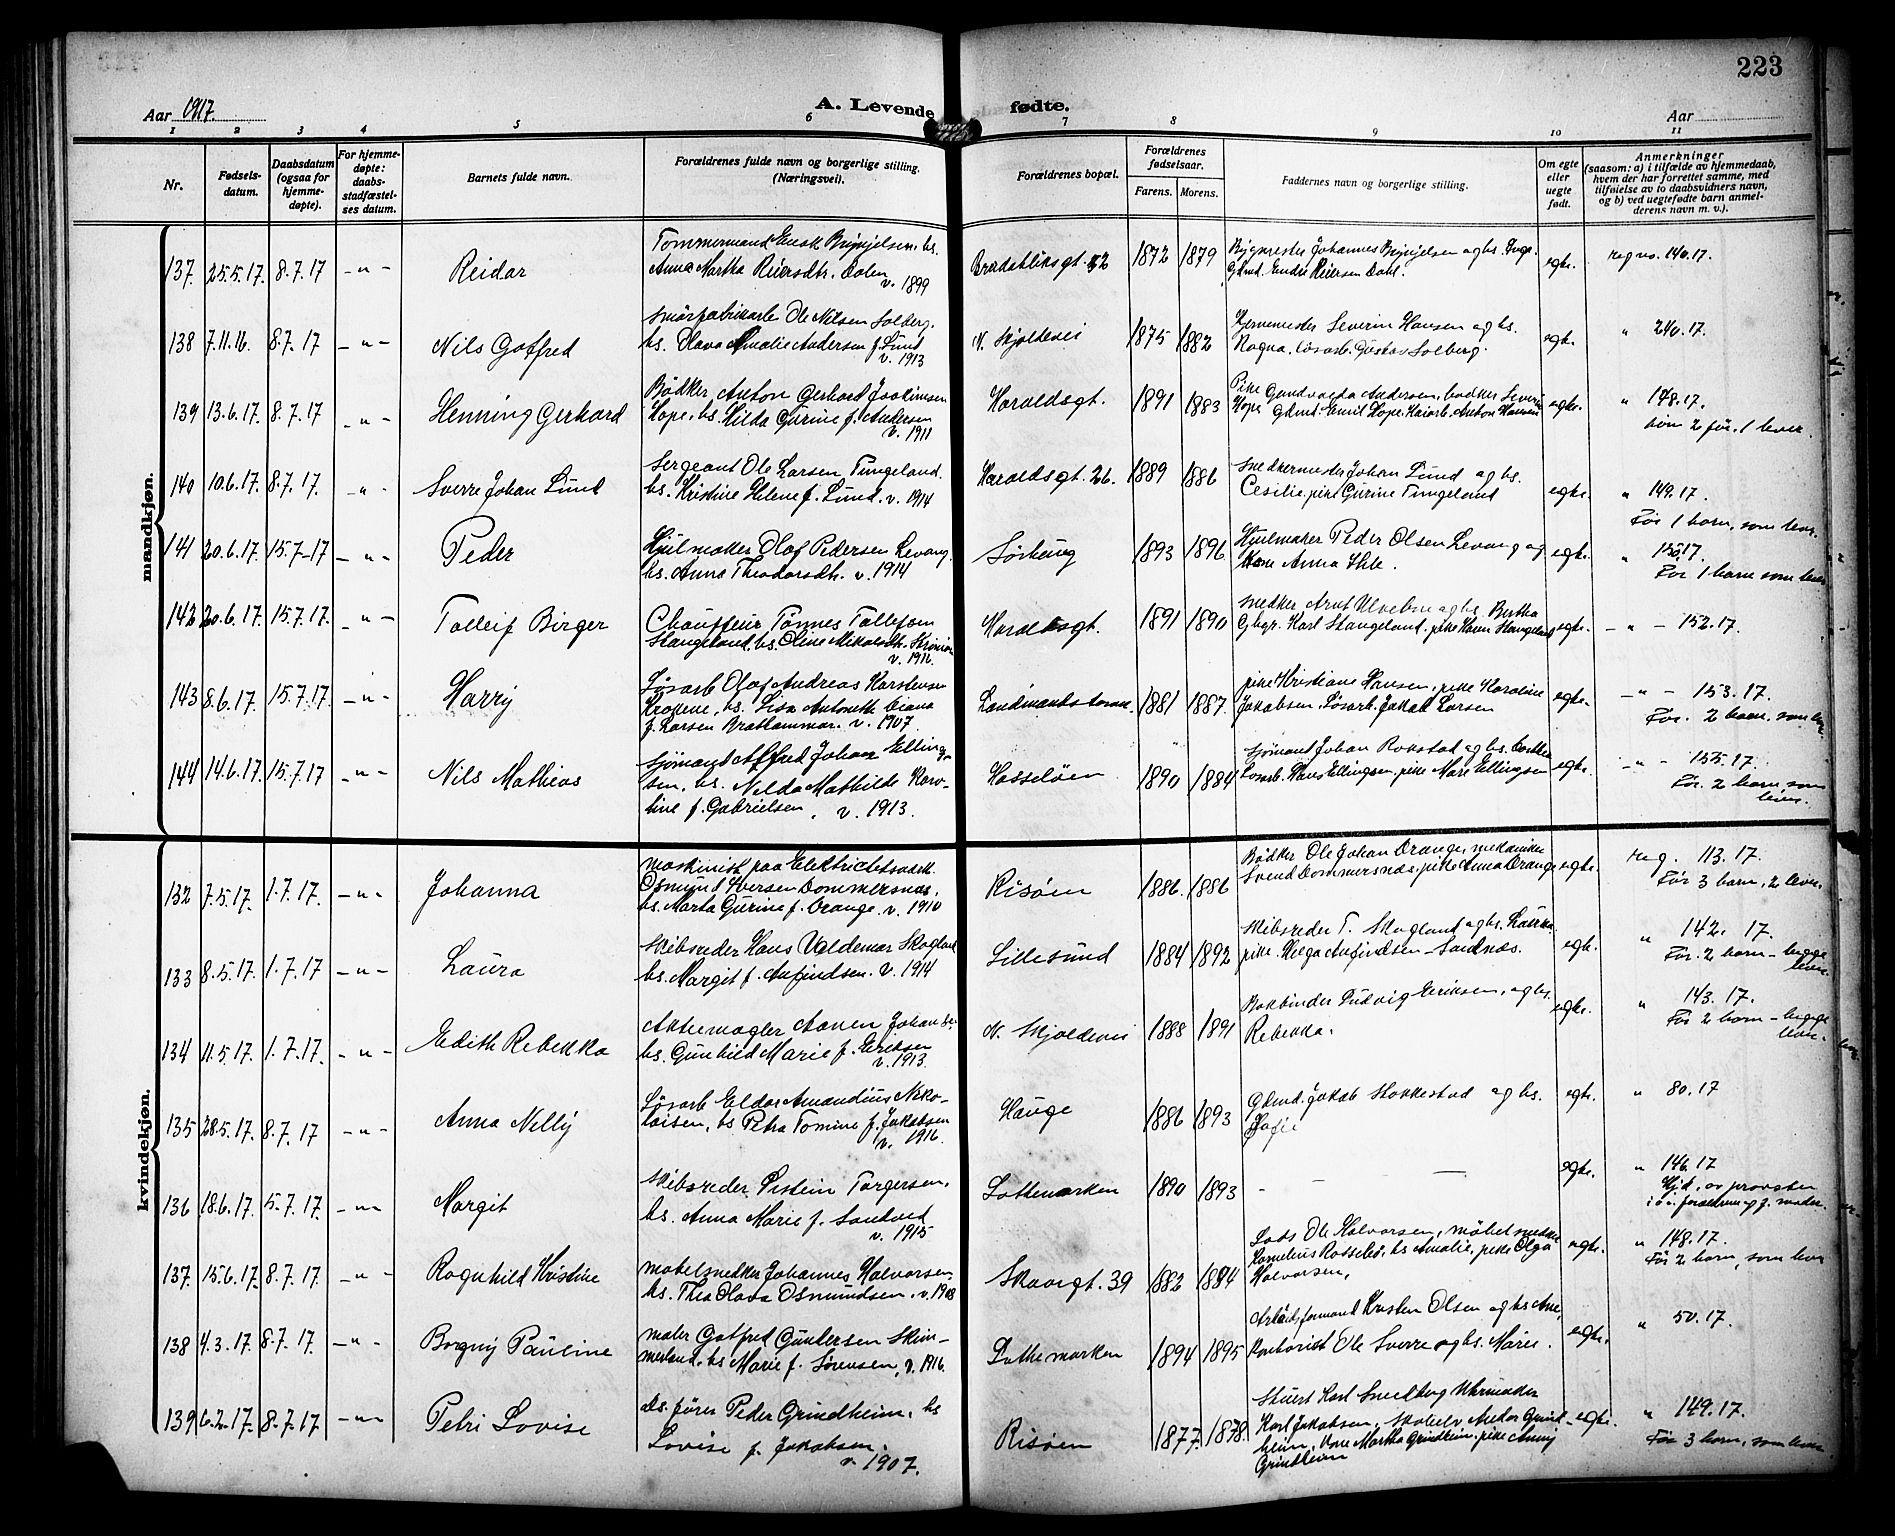 223
Aar 1917.
A. Levende fødte.
Aar
1 2 3 4 5 6 7 8 9 10 11
Nr.
Fødsels-
datum.
Daabsdatum
(ogsaa for
hjemme-
døpte).
For hjemme-
døpte:
daabs-
stadfæstel-
ses datum.
Barnets fulde navn.
Forældrenes fulde navn og borgerlige stilling.
(Næringsvei).
Forældrenes bopæl.
Forældrenes
fødselsaar.
Farens. Morens.
Faddernes navn og borgerlige stilling.
Om egte
eller
uegte
født.
Anmerkninger
(saasom: a) i tilfælde av hjemmedaab,
hvem der har forrettet samme, med
tilføielse av to daabsvidners navn,
og b) ved uegtefødte barn anmel-
derens navn m. v.).
mandkjøn.
137. 25.5.17. 8.7.17 -"- Reidar
Tommermand Enok Brynjelsen, hs.
Anna Martha Reiersdtr. Dalen
v. 1899
1872 1879
Johannes Brynjelsen og hs.
Gdmd. Endre Reiersen
egte.
reg no. 140.17.
138 7.11.16. 8.7.17 -"- Nils Gotfred
Smørfabrikarb. Ole Nilsen Solberg,
hs. Olava Amalie Andersen f. Lund
v. 1913
N. Skjoldevei 1875 1882
Severin Hansen og hs.
Ragna, løsarb. Gustav Solberg.
egte.
" 240.17.
139 13.6.17. 8.7.17 -"- Henning Gerhard
Bødker Anton Gerhard Joakimsen
Hope, hs. Hilda Gurine f. Andersen
v. 1911
Haraldsgt. 1891 1883
Pike Andersen, bødker Severin
Hope Gdmd. Emil Hope, Anton Hansen
egte.
" 148.17.
2 før. 1 lever.
140 10.6.17. 8.7.17. -"- Sverre Johan Lund
Sergeant Ole Larsen Tungeland.
hs. Kristine Helene f. Lund. v. 1914
Haraldsgt. 26. 1889 1886
Snedkermester Johan Lund og hs.
Cesilie, pike Gurine Tungeland
egte.
" 149.17.
Før 1 barn, som lever.
141 20.6.17. 15.7-17 -"- Peder
Hjulmaker Olaf Pedersen Levang.
hs. Anna Theodorsdtr. v. 1914
Sørhaug 1893 1896
Hjulmaker Peder Olsen Levang og
Kone Anna
egte.
" 150.17.
Før 1 barn som lever
142 20.6.17. 15.7.17. -"- Tolleif Birger
Chauffeur Tønnes Tollefsen
Stangeland. hs. Oline
v. 1916.
Haraldsgt. 1891 1890
Snedker, og hs. Bertha
Karl Stangeland, pike Stangeland
egte.
-"- 152.17.
143 8.6.17. 15.7.17. -"- Harry
Løsarb Olaf Andreas Karstensen
hs. Lisa Antonette
f. Larsen v. 1907.
1881 1887.
pike Kristiane Hansen, pike Karoline
Jakobsen, Løsarb. Jakob Larsen
egte.
-"- 153.17.
Før. 2 barn, som lev.
144 14.6.17. 15.7.17 -"- Nils Mathias
Sjømand Alfred Johan Elling-
sen, hs. Nilda Mathilde Karo-
line f. Gabrielsen, v. 1913.
Hasseløen 1890 1884
Sjømand Johan Rokstad og hs.
Løsarb. Hans Ellingsen, pike Marie Ellingsen
egte.
-"- 155.17.
Før. 2 barn som
lever.
kvindekjøn.
132 7.5.17. 1.7.17. -"- Johanna
Maskinist paa Elektricitetsverk.
Osmund Iversen Dommersnæs,
hs. Marta Gurine f. Orange. v. 1910
Risøen 1886. 1886
Bødker Ole Johan Orange, mekaniker
Svend Dommersnæs, pike Anna Orange
egte.
reg. 113.17.
Før 3 barn, 2 lever.
133 8.5.17. 1.7.17 -"- Laura
Skibsreder Hans Valdemar Skogland
hs. Margit f. Anfindsen. v. 1914
Lillesund 1884 1892
Skibsreder T. Skogland og hs. Laura,
pike. Helga Anfindsen - Sandnæs.
egte.
" 142. 17.
Før. 2 barn - begge
lever.
134 11.5.17. 1.7.17. -"- Edith Rebekka
Aktiemægler Johan
hs. Gunhild Marie f. Eriksen
v. 1913.
N. Skjoldevei 1888 1891
Bokbinder Ludvig Eriksen, og hs.
Rebekka.
egte.
" 143. 17.
Før 2 barn - begge
lever.
135 28.5.17. 8.7.17 -"- Anna Nelly
Løsarb Eldar Amandius Niko-
laisen, hs Petra Tomine f. Jakobsen
v. 1916.
Hauge 1886 1893
Gdmd. Jakob Stokkestad og hs.
egte.
" 80.17
136 18.6.17. 5.7.17. -"- Margit
Skibsreder Torgersen,
hs. Anna Marie f. Sandved
v. 1915
Lothemarken 1890 1893
- - —
egte.
" 146.17
Hjd. av provsten
137. 15.6.17. 8.7.17. -"- Ragnhild Kristine
Møbelsnedker Johannes Halvorsen,
hs. Thea Olava Osmundsen. v. 1908
Skaaregt. 39 1882 1884
Lods Ole Halvorsen, møbelsnedker
Kornelius hs Amalie, pike Olga
Halvorsen,
egte.
" 148.17.
Før 2 barn, som lever
138 4.3.17. 8.7.17. -"- Borgny Pauline
Maler Gotfred Gundersen Skim-
merland, hs Marie f. Sørensen, v. 1916.
Lothemarken 1894 1895
Arbeidsformand Kristen Olsen og hs Ane,
Kontorist Ole Sverre og hs. Marie.
egte.
" 50.17.
139 6.2.17. 8.7.17 -"- Petri Lovise
ds. fører Peder Grindheim, hs
Lovise f. Jakobsen.
v. 1907.
Risøen 1877. 1878.
Stuert Karl Snedberg Uhrmaker
Karl Jakobsen, Grind-
heim, Martha Grindheim, pike Anny
Grindheim
egte.
" 149.17.
Før 3 barn, som lever